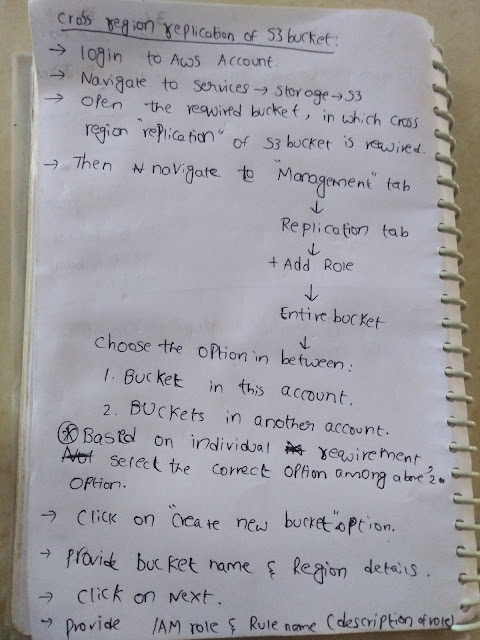 Cross region replication of S3 bucket:
→ Login to AWS Account.
→ Navigate to services → storage → S3
→ Open the required bucket, in which cross
region "replication" of S3 bucket is required.
→ Then navigate to "Management" tab
↓
Replication tab
↓
+ Add Role
↓
Entire bucket
↓
Choose the option in between:
1. Bucket in this account.
2. Buckets in another account.
* Based on individual requirement,
Not select the correct option among above 2
option.
→ Click on "Create new bucket" option.
→ Provide bucket name & Region details.
→ Click on Next.
→ Provide IAM role & Rule name (description of role)